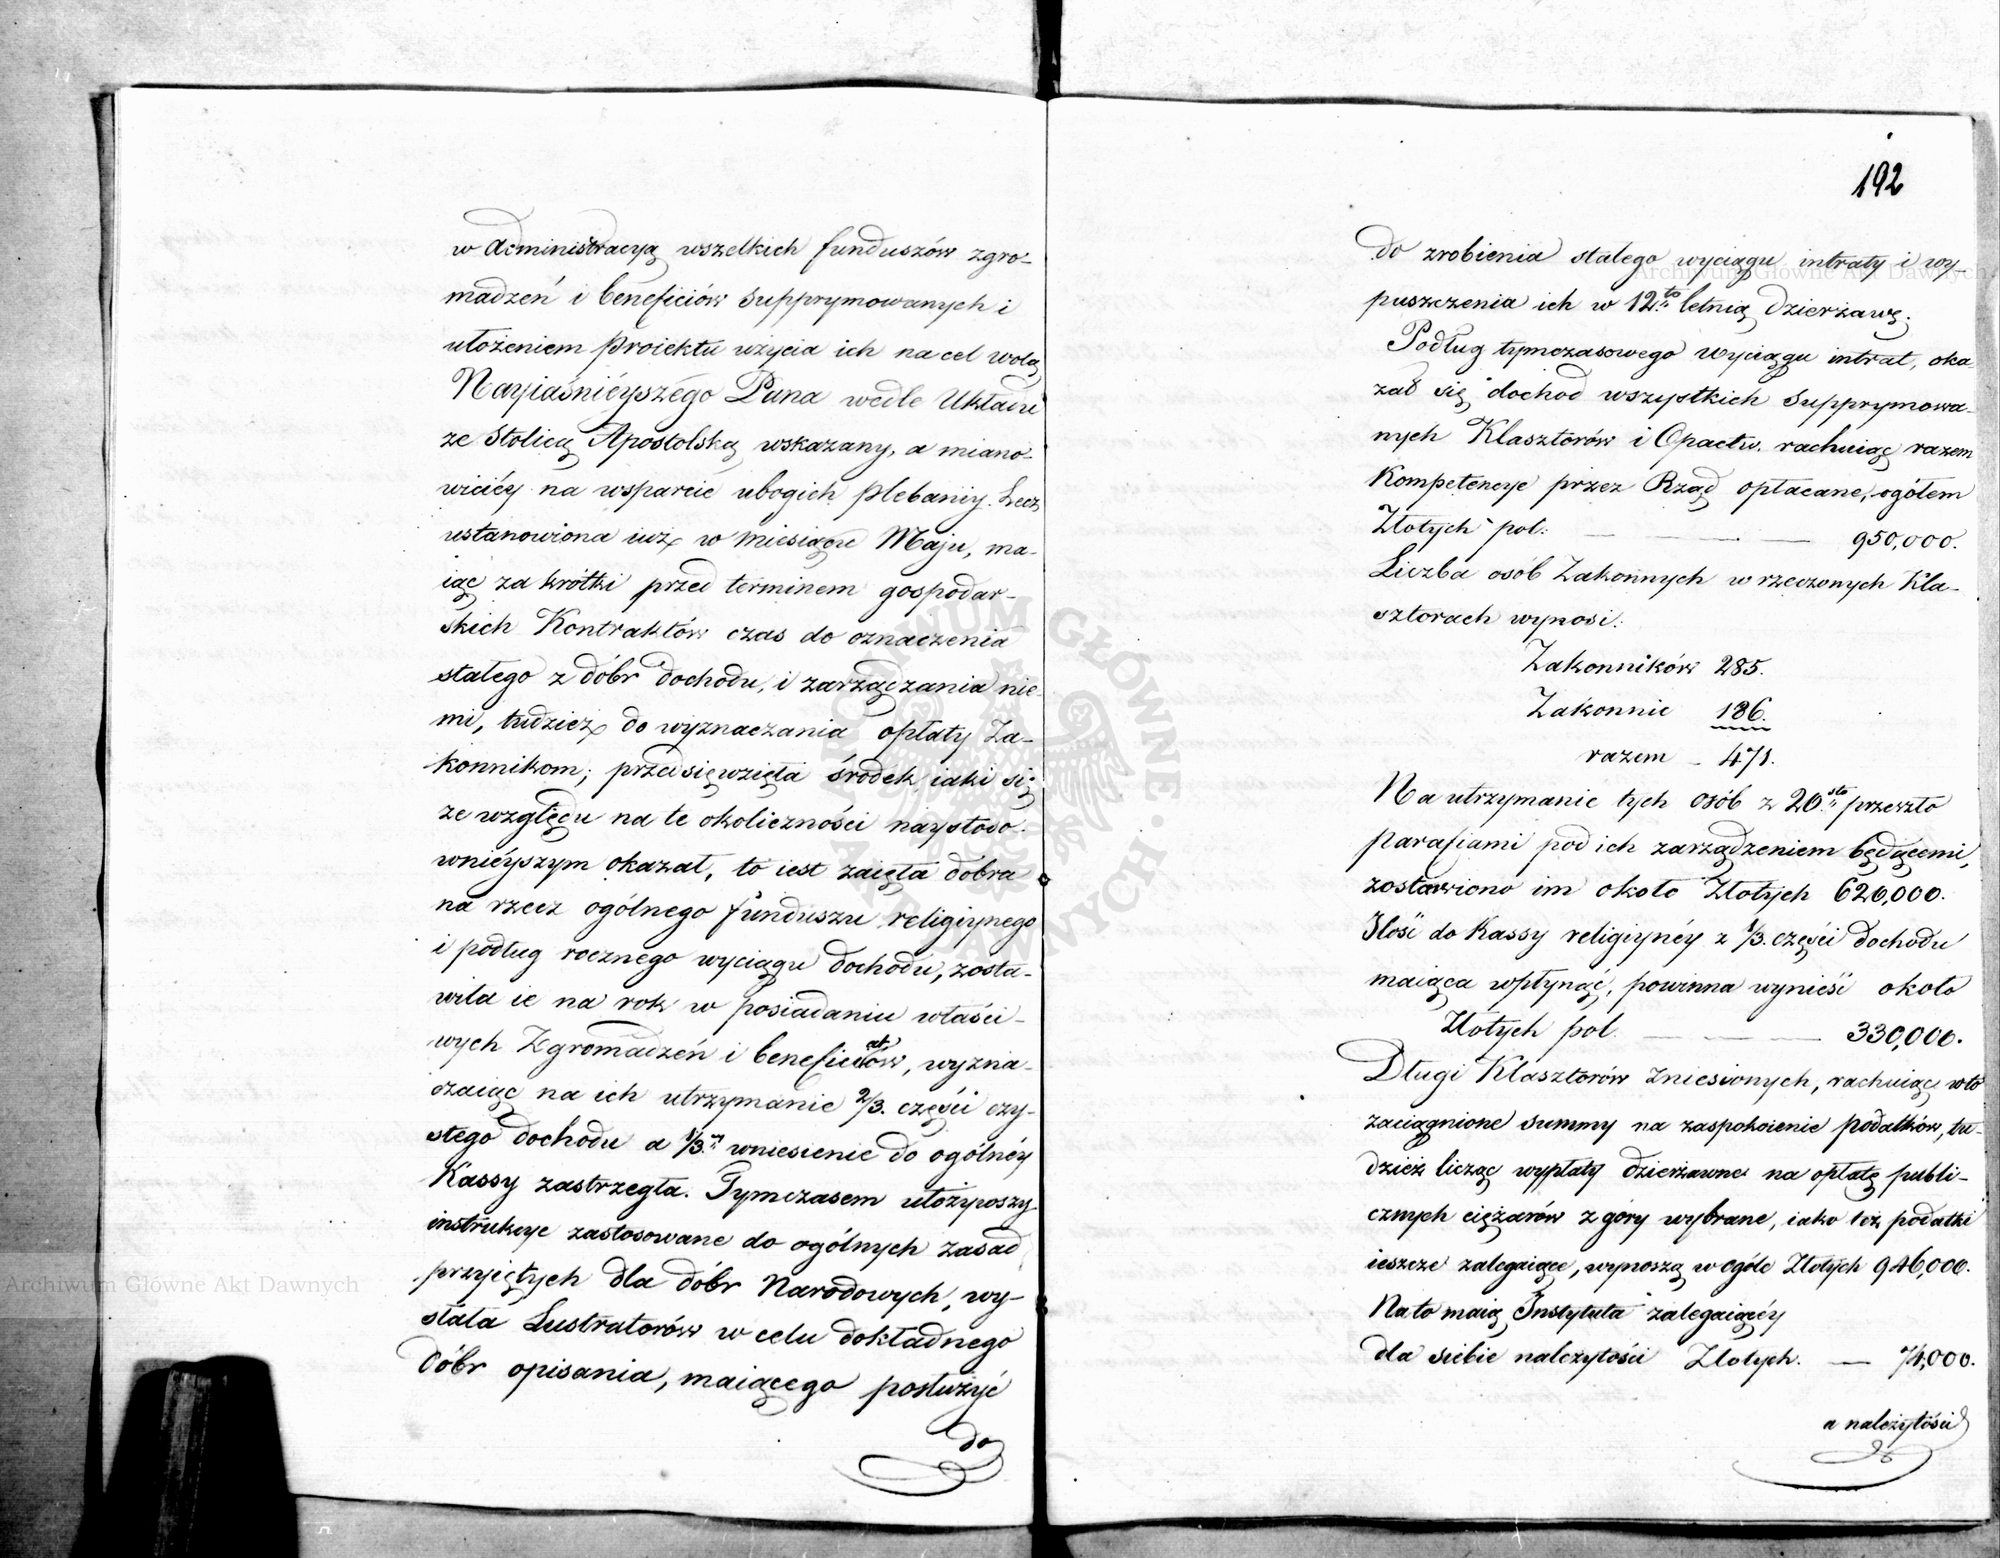 w administracyą wszelkich funduszów zgro-
madzeń i beneficiów supprymowanych i
ułożeniem proiektu użycia ich na cel wolą
Nayiaśnieyszégo Pana wedle Układu
ze Stolicą Apostolską wskazany, a miano-
wiciéy na wsparcie ubogich plebaniy. Lecz
ustanowiona iuż w miesiącu Maju, ma-
iąc za krótki przed terminem gospodar-
skich Kontraktów czas do oznaczenia
stałego z dóbr dochodu, i zarządzania nie-
mi, tudzież do wyznaczania opłaty Za-
konnikom; przedsięwzięła środek iaki się
ze względu na te okoliczności naystoso-
wniéyszym okazał, to iest zaięła dobra
na rzecz ogólnego funduszu religiynego
i podług rocznego wyciągu dochodu, zosta-
wiła ie na rok w posiadaniu właści-
wych Zgromadzeń i beneficiatów, wyzna-
czaiąc na ich utrzymanie 2/3. części czy-
stego dochodu a 1/3. wniesienie do ogólnéy
Kassy zastrzegła. Tymczasem ułożywszy
instrukcye zastosowane do ogólnych zasad
przyiętych dla dóbr Narodowych, wy-
słała Lustratorów w celu dokładnego
dóbr opisania, maiącego posłużyć
do
192
do zrobienia stałego wyciągu intraty i wy-
puszczenia ich w 12.to letnią dzierżawę.
Podług tymczasowego wyciągu intrat, oka-
zał się dochod wszystkich supprymowa-
nych Klasztorów i Opactw, rachuiąc razem
Kompetencye przez Rząd opłacane, ogółem
Złotych pol: — — — — 950,000.
Liczba osób Zakonnych w rzeczonych Kla-
sztorach wynosi:
Zakonników 285.
Zakonnic 186.
razem — 471.
Na utrzymanie tych osób z 20.sto przeszło
parafiami pod ich zarządzeniem będącemi,
zostawiono im około Złotych 620,000.
Ilość do Kassy religiynéy z 1/3. części dochodu
maiąca wpłynąć, powinna wynieść około
Złotych pol. — — — — 330,000.
Długi Klasztorów zniesionych, rachuiąc w to
zaciągnione summy na zaspokoienie podatków, tu-
dzież licząc wypłaty dzierżawne na opłatę publi-
cznych ciężarów z góry wybrane, iako też podatki
ieszcze zalegaiące, wynoszą w ogóle Złotych 946,000.
Na to maią Instytuta zalegaiącéy
dla siebie należytości Złotych. — 74,000.
a należytości
Archiwum Główne Akt Dawnych
Archiwum Główne Akt Dawnych
ARCHIWUM GŁÓWNE AKT DAWNYCH